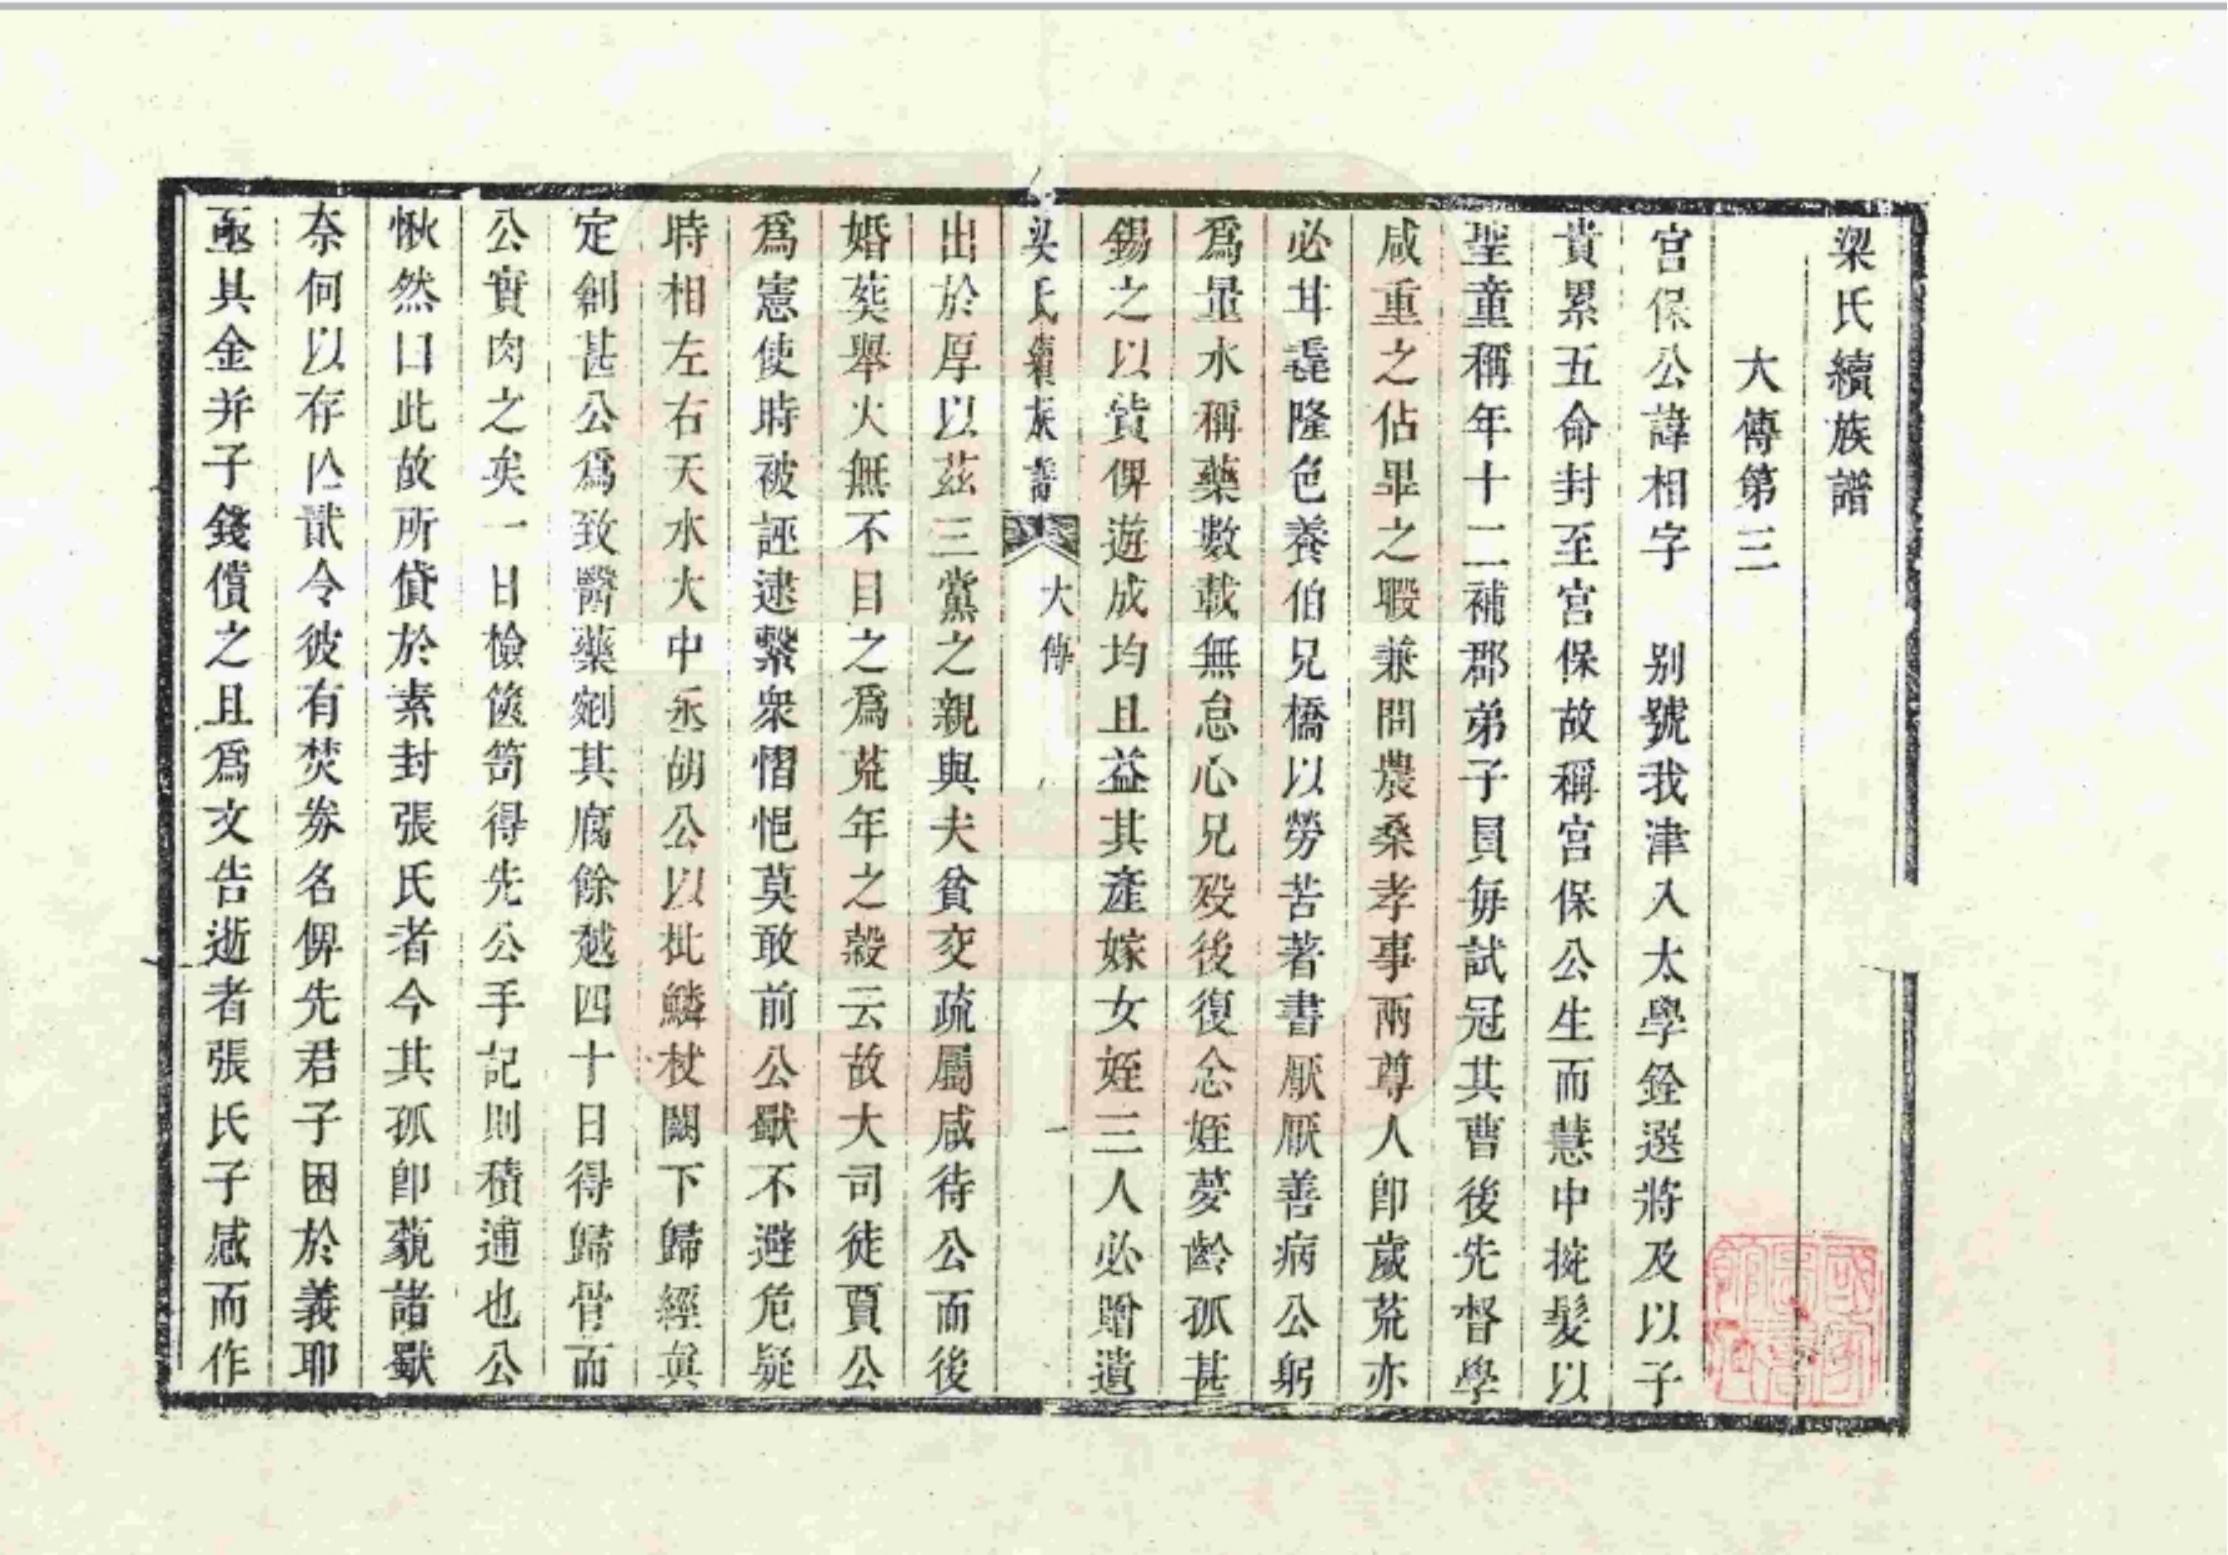 梁氏續族譜
大傳第三
宮保公諱相字 别號我津入太學銓選將及以子
貴累五命封至宮保故稱宮保公生而慧中掟髮以
聖童稱年十二補郡弟子員毎試冠其曹後先督學
咸重之佔畢之暇兼問農桑孝事兩尊人卽歲荒亦
必甘毳隆色養伯兄橋以勞苦著書厭厭善病公躬
爲量水稱藥數載無怠心兄歿後復念姪夢齡孤甚
錫之以貲俾遊成均且益其產嫁女姪三人必贈遺
梁氏續族譜 大傳 一
出於厚以茲三黨之親與夫貧交疏屬咸待公而後
婚葬舉火無不目之爲荒年之穀云故大司徒賈公
爲憲使時被誣逮繫衆慴悒莫敢前公獸不避危疑
時相左右天水大中丞胡公以批鱗杖闕下歸經眞
定創甚公爲致醫藥剜其腐餘越四十日得歸骨而
公實肉之矣一日檢篋笥得先公手記則積逋也公
愀然曰此故所貸於素封張氏者今其孤卽藐諸獸
奈何以存亡貳令彼有焚券名俾先君子困於義耶
亟具金并子錢償之且爲文告逝者張氏子感而作